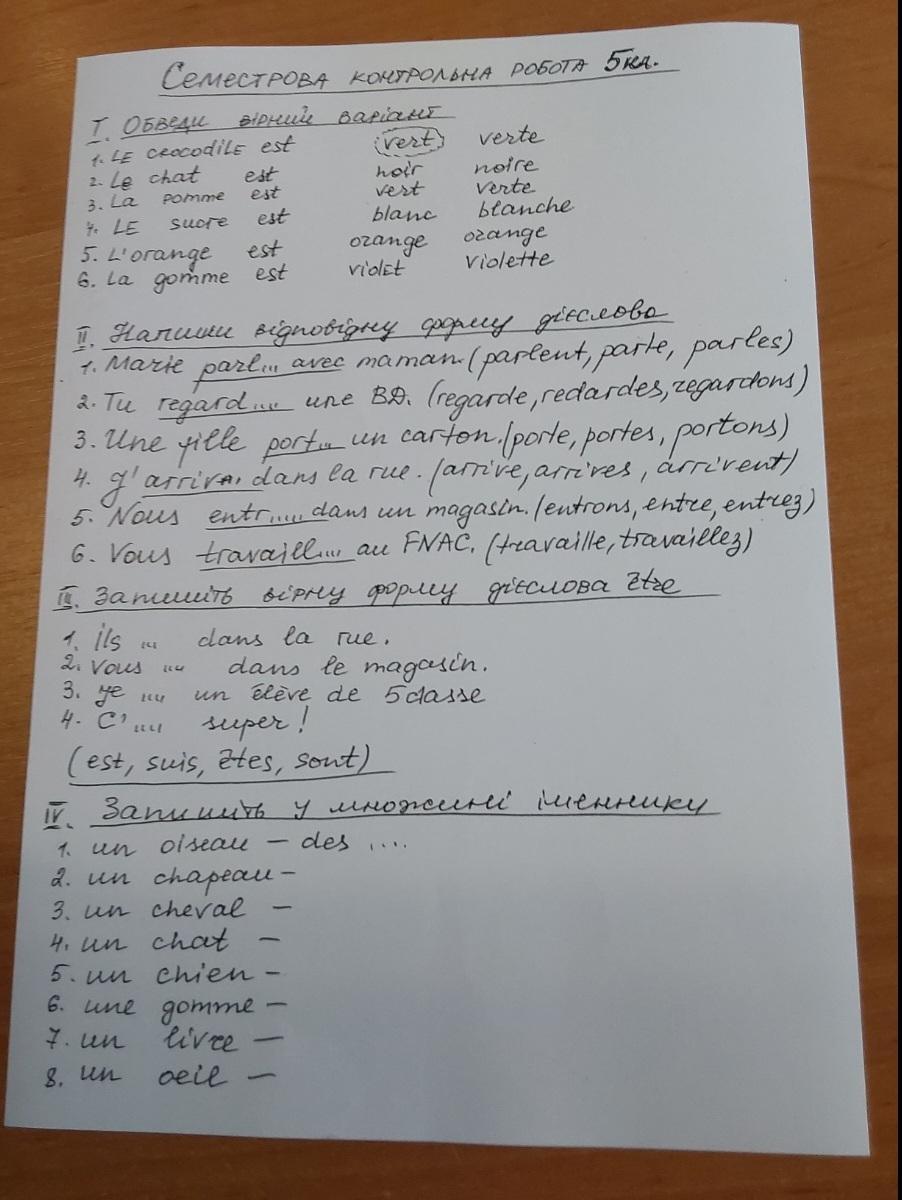 Семестрова контрольна робота 5кл.
I. Обведи вірний варіант
1. Le crocodile est vert verte
2. Le chat est noir noire
3. La pomme est vert verte
4. Le sucre est blanc blanche
5. L'orange est orange orange
6. La gomme est violet violette
II. Напиши відповідну форму дієслова
1. Marie parl... avec maman. (parlent, parle, parles)
2. Tu regard.... une BD. (regarde, redardes, regardons)
3. Une fille port... un carton. (porte, portes, portons)
4. J'arriv... dans la rue. (arrive, arrives, arrivent)
5. Nous entr..... dans un magasin. (entrons, entre, entrez)
6. Vous travaill.... au FNAC. (travaille, travaillez)
III. Запишіть вірну форму дієслова être
1. ils ... dans la rue.
2. Vous ... dans le magasin.
3. Je .... un élève de 5 classe
4. C'.... super!
(est, suis, êtes, sont)
IV. Запишіть у множині іменники
1. un oiseau – des ....
2. un chapeau –
3. un cheval –
4. un chat –
5. un chien –
6. une gomme –
7. un livre –
8. un oeil –